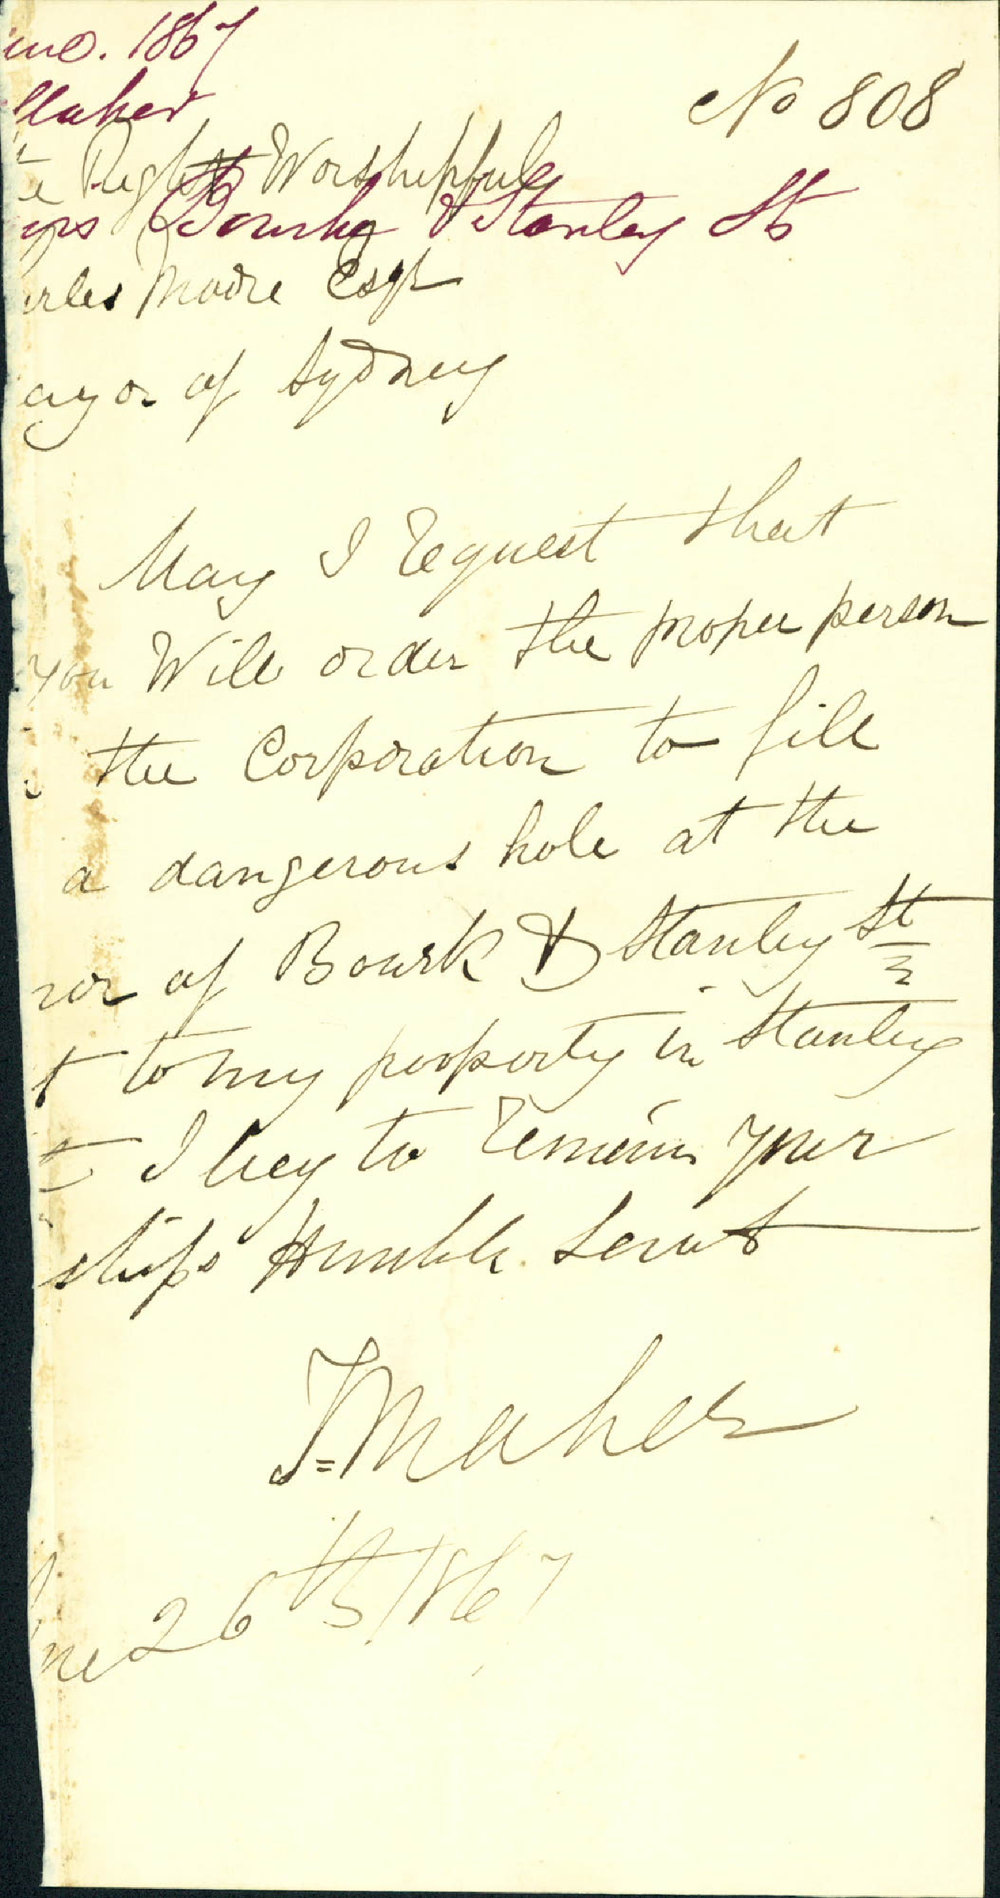 une. 1867
Maher
No 808
e Right Worshipful
ers Bourke & Stanley St
arles Moore Esqr
ayor of Sydney
May I request that
you Will order the proper person
the Corporation to fill
a dangerous hole at the
nor of Bourk & Stanley St
t to my property in Stanley
t I beg to remain your
ships Humble Servt
J= Maher
ne 26th/1867